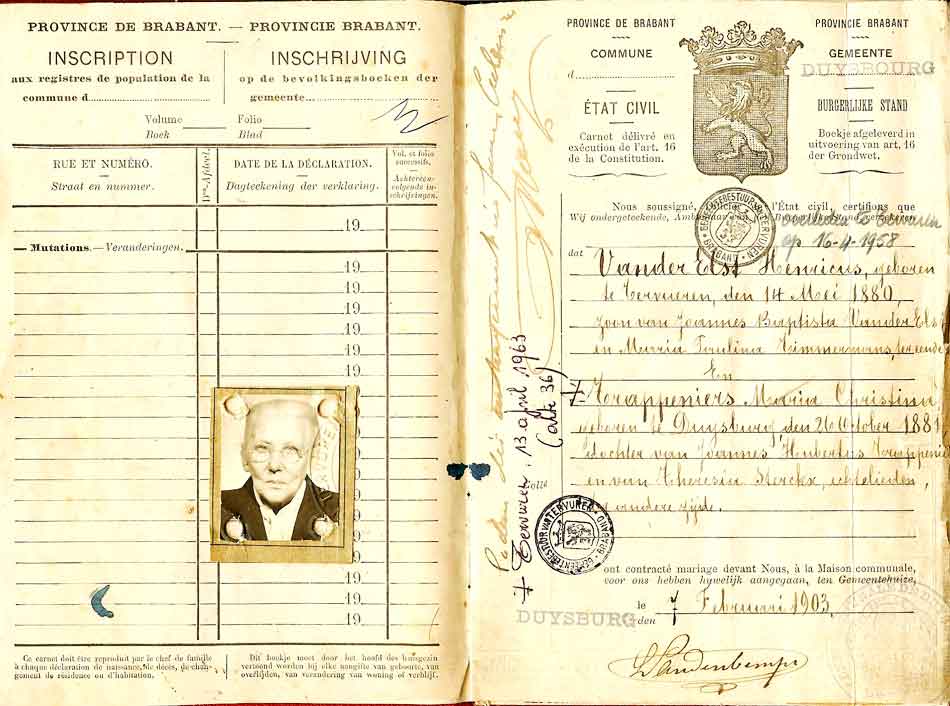 PROVINCE DE BRABANT. — PROVINCIE BRABANT.
INSCRIPTION
aux registres de population de la
commune d
INSCHRIJVING
op de bevolkingsboeken der
gemeente
Volume
Boek
Folio
Blad
RUE ET NUMÉRO.
Straat en nummer.
DATE DE LA DÉCLARATION.
Dagteekening der verklaring.
Vol. et folios
successifs.
Achtereen-
volgende in-
schrijvingen.
19
— Mutations. — Veranderingen.
19
19
19
19
19
19
19
19
Ce carnet doit être reproduit par le chef de famille
à chaque déclaration de naissance, de décès, de chan-
gement de résidence ou d'habitation.
Dit boekje moet door het hoofd des huisgezin
vertoond worden bij elke aangifte van geboorte, van
overlijden, van verandering van woning of verblijf.
PROVINCE DE BRABANT
COMMUNE
d
ÉTAT CIVIL
Carnet délivré en
exécution de l'art. 16
de la Constitution.
PROVINCIE BRABANT
GEMEENTE
DUYSBOURG
BURGERLIJKE STAND
Boekje afgeleverd in
uitvoering van art. 16
der Grondwet.
Nous soussigné, l'État civil, certifions que
Wij ondergeteekende,
overleden te Tervuren
op 16-4-1958
dat Vander Elst Henricus, geboren
te Tervueren, den 14 Mei 1880,
zoon van Joannes Baptista Vander Elst
en Maria Paulina Timmermans, ter eender
En
+ Trappeniers Maria Christina
geboren te Duysburg, den 26 October 1881
dochter van Joannes Hubertus Trappenie
en van Theresia Sterckx, echtelieden,
ter andere zijde.
+ Tervuren, 13 april 1963
(akte 36)
GEMEENTEBESTUUR VAN TERVUREN
BRABANT
ont contracté mariage devant Nous, à la Maison communale,
voor ons hebben huwelijk aangegaan, ten Gemeentehuize,
le 7 Februari 1903
den
DUYSBURG